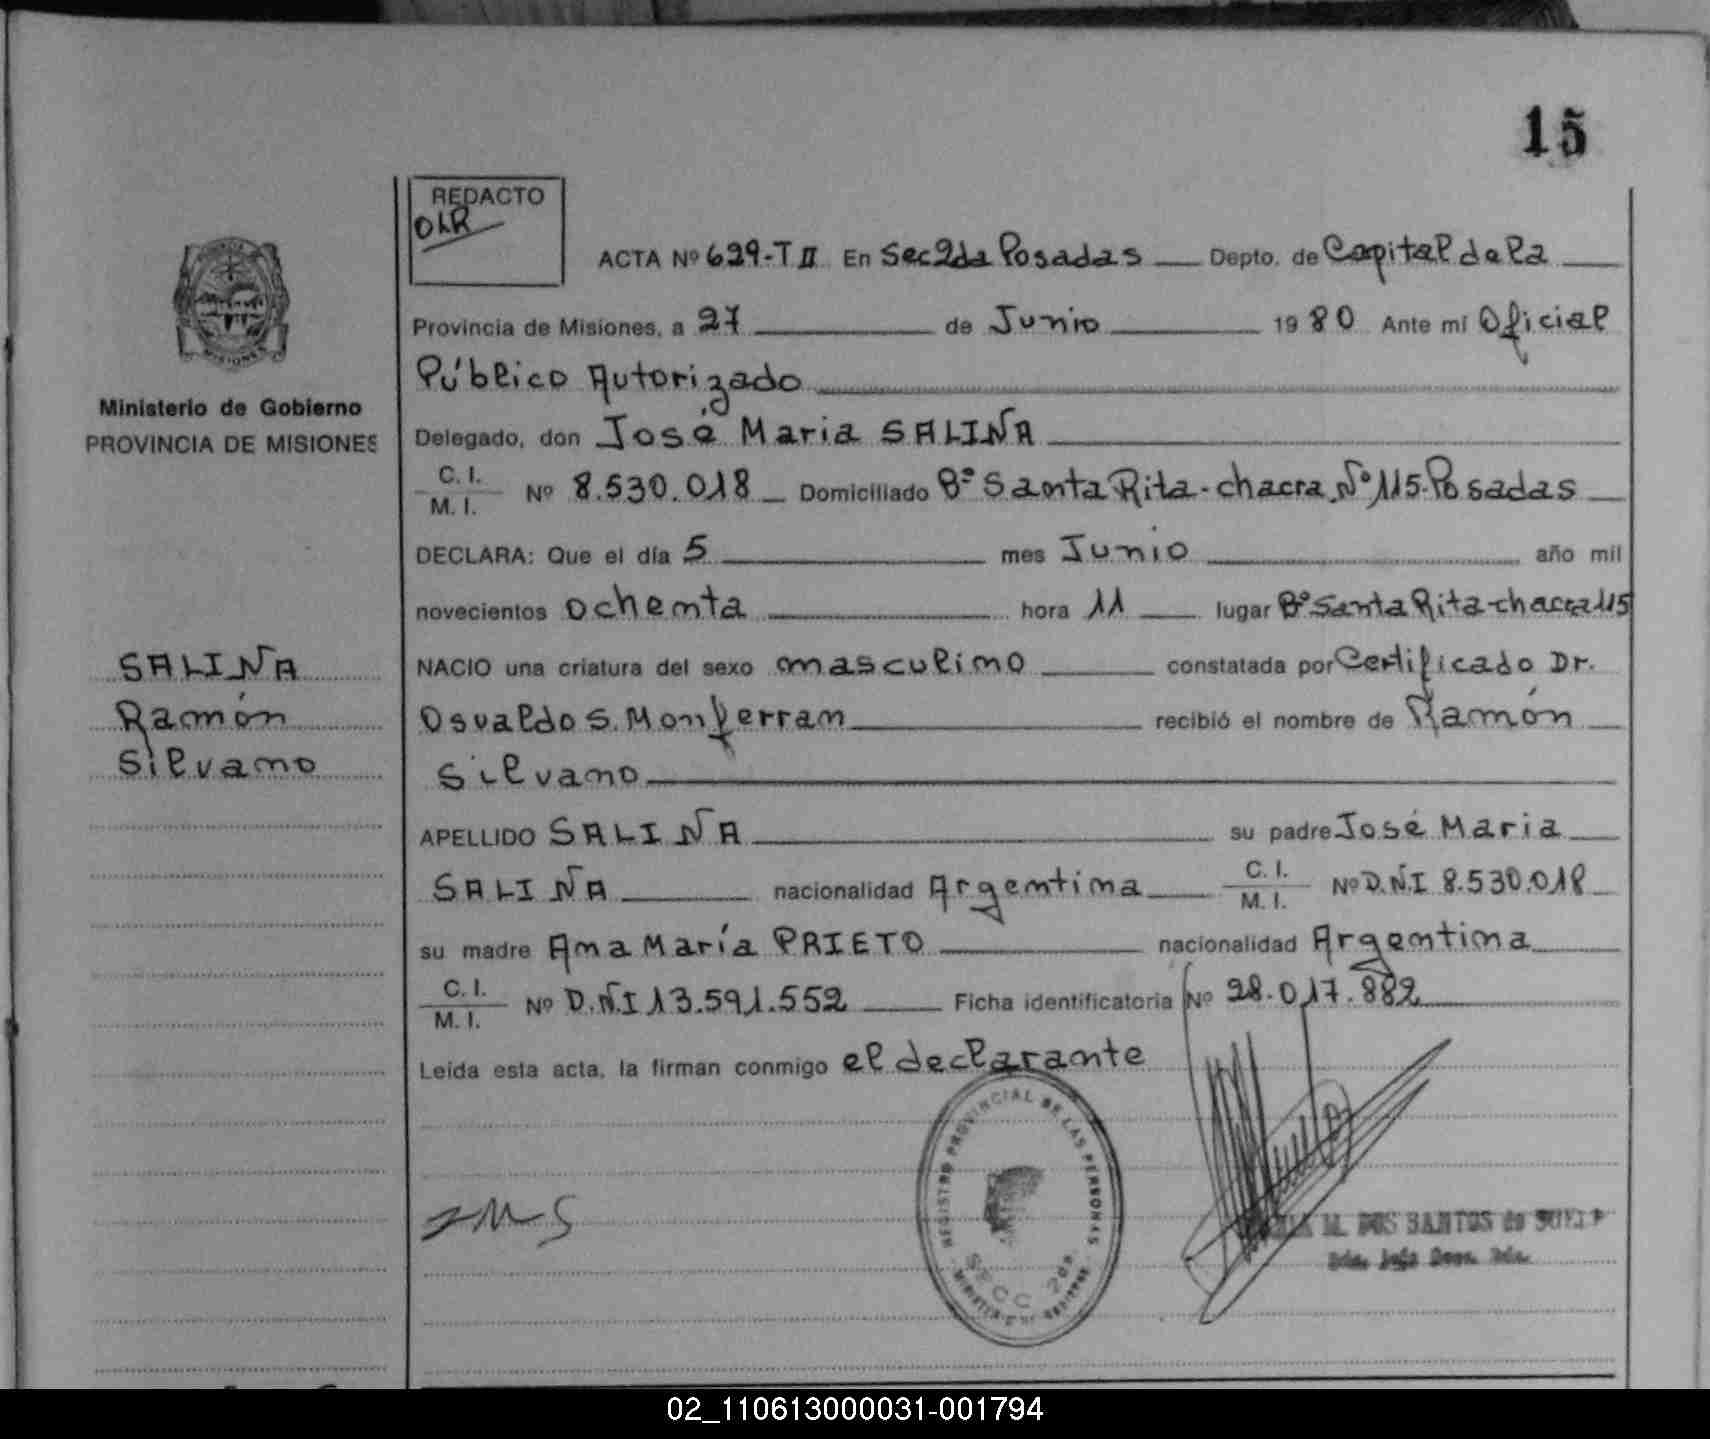 15
REDACTO
OLR
ACTA Nº 629-T II En Sec 2da Posadas Depto. de Capital de la
Provincia de Misiones, a 27 de Junio 1980 Ante mi Oficial
Público Autorizado
Delegado, don José Maria SALIÑA
C. I.
M. I. Nº 8.530.018 Domiciliado Bº Santa Rita-chacra Nº 115-Posadas
DECLARA: Que el día 5 mes Junio año mil
novecientos ochenta hora 11 lugar Bº Santa Rita-chacra 115
NACIO una criatura del sexo masculino constatada por Certificado Dr.
Osvaldo S. Monferran recibió el nombre de Ramón
Silvano
APELLIDO SALIÑA su padre José Maria
SALIÑA nacionalidad Argentina C. I.
M. I. Nº D.N.I 8.530.018
su madre Ana María PRIETO nacionalidad Argentina
C. I.
M. I. Nº D.N.I 13.591.552 Ficha identificatoria Nº 28.017.882
Leída esta acta, la firman conmigo el declarante
Ministerio de Gobierno
PROVINCIA DE MISIONES
SALIÑA
Ramón
Silvano
JMS
REGISTRO PROVINCIAL DE LAS PERSONAS
SECC 2da
M. DOS SANTOS de
02_110613000031-001794